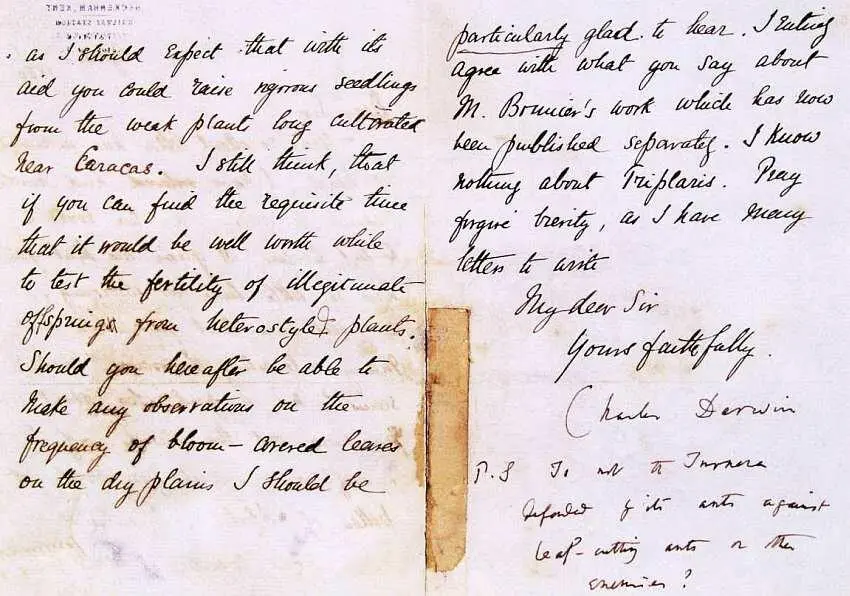 BECKENHAM, KENT.
RAILWAY STATION
as I should expect that with its
aid you could raise vigorous seedlings
from the weak plant long cultivated
near Caracas. I still think, that
if you can find the requisite time
that it would be well worth while
to test the fertility of illegitimate
offspring from heterostyled plants.
Should you hereafter be able to
make any observations on the
frequency of bloom-covered leaves
on the dry plains I should be
particularly glad to hear. I entirely
agree with what you say about
M. Bonnier's work which has now
been published separately. I know
nothing about Triplaris. Pray
forgive brevity, as I have many
letters to write
My dear Sir
Yours faithfully.
Charles Darwin
P.S Is not the Turnera
defended by its ants against
leaf-cutting ants or other
enemies?